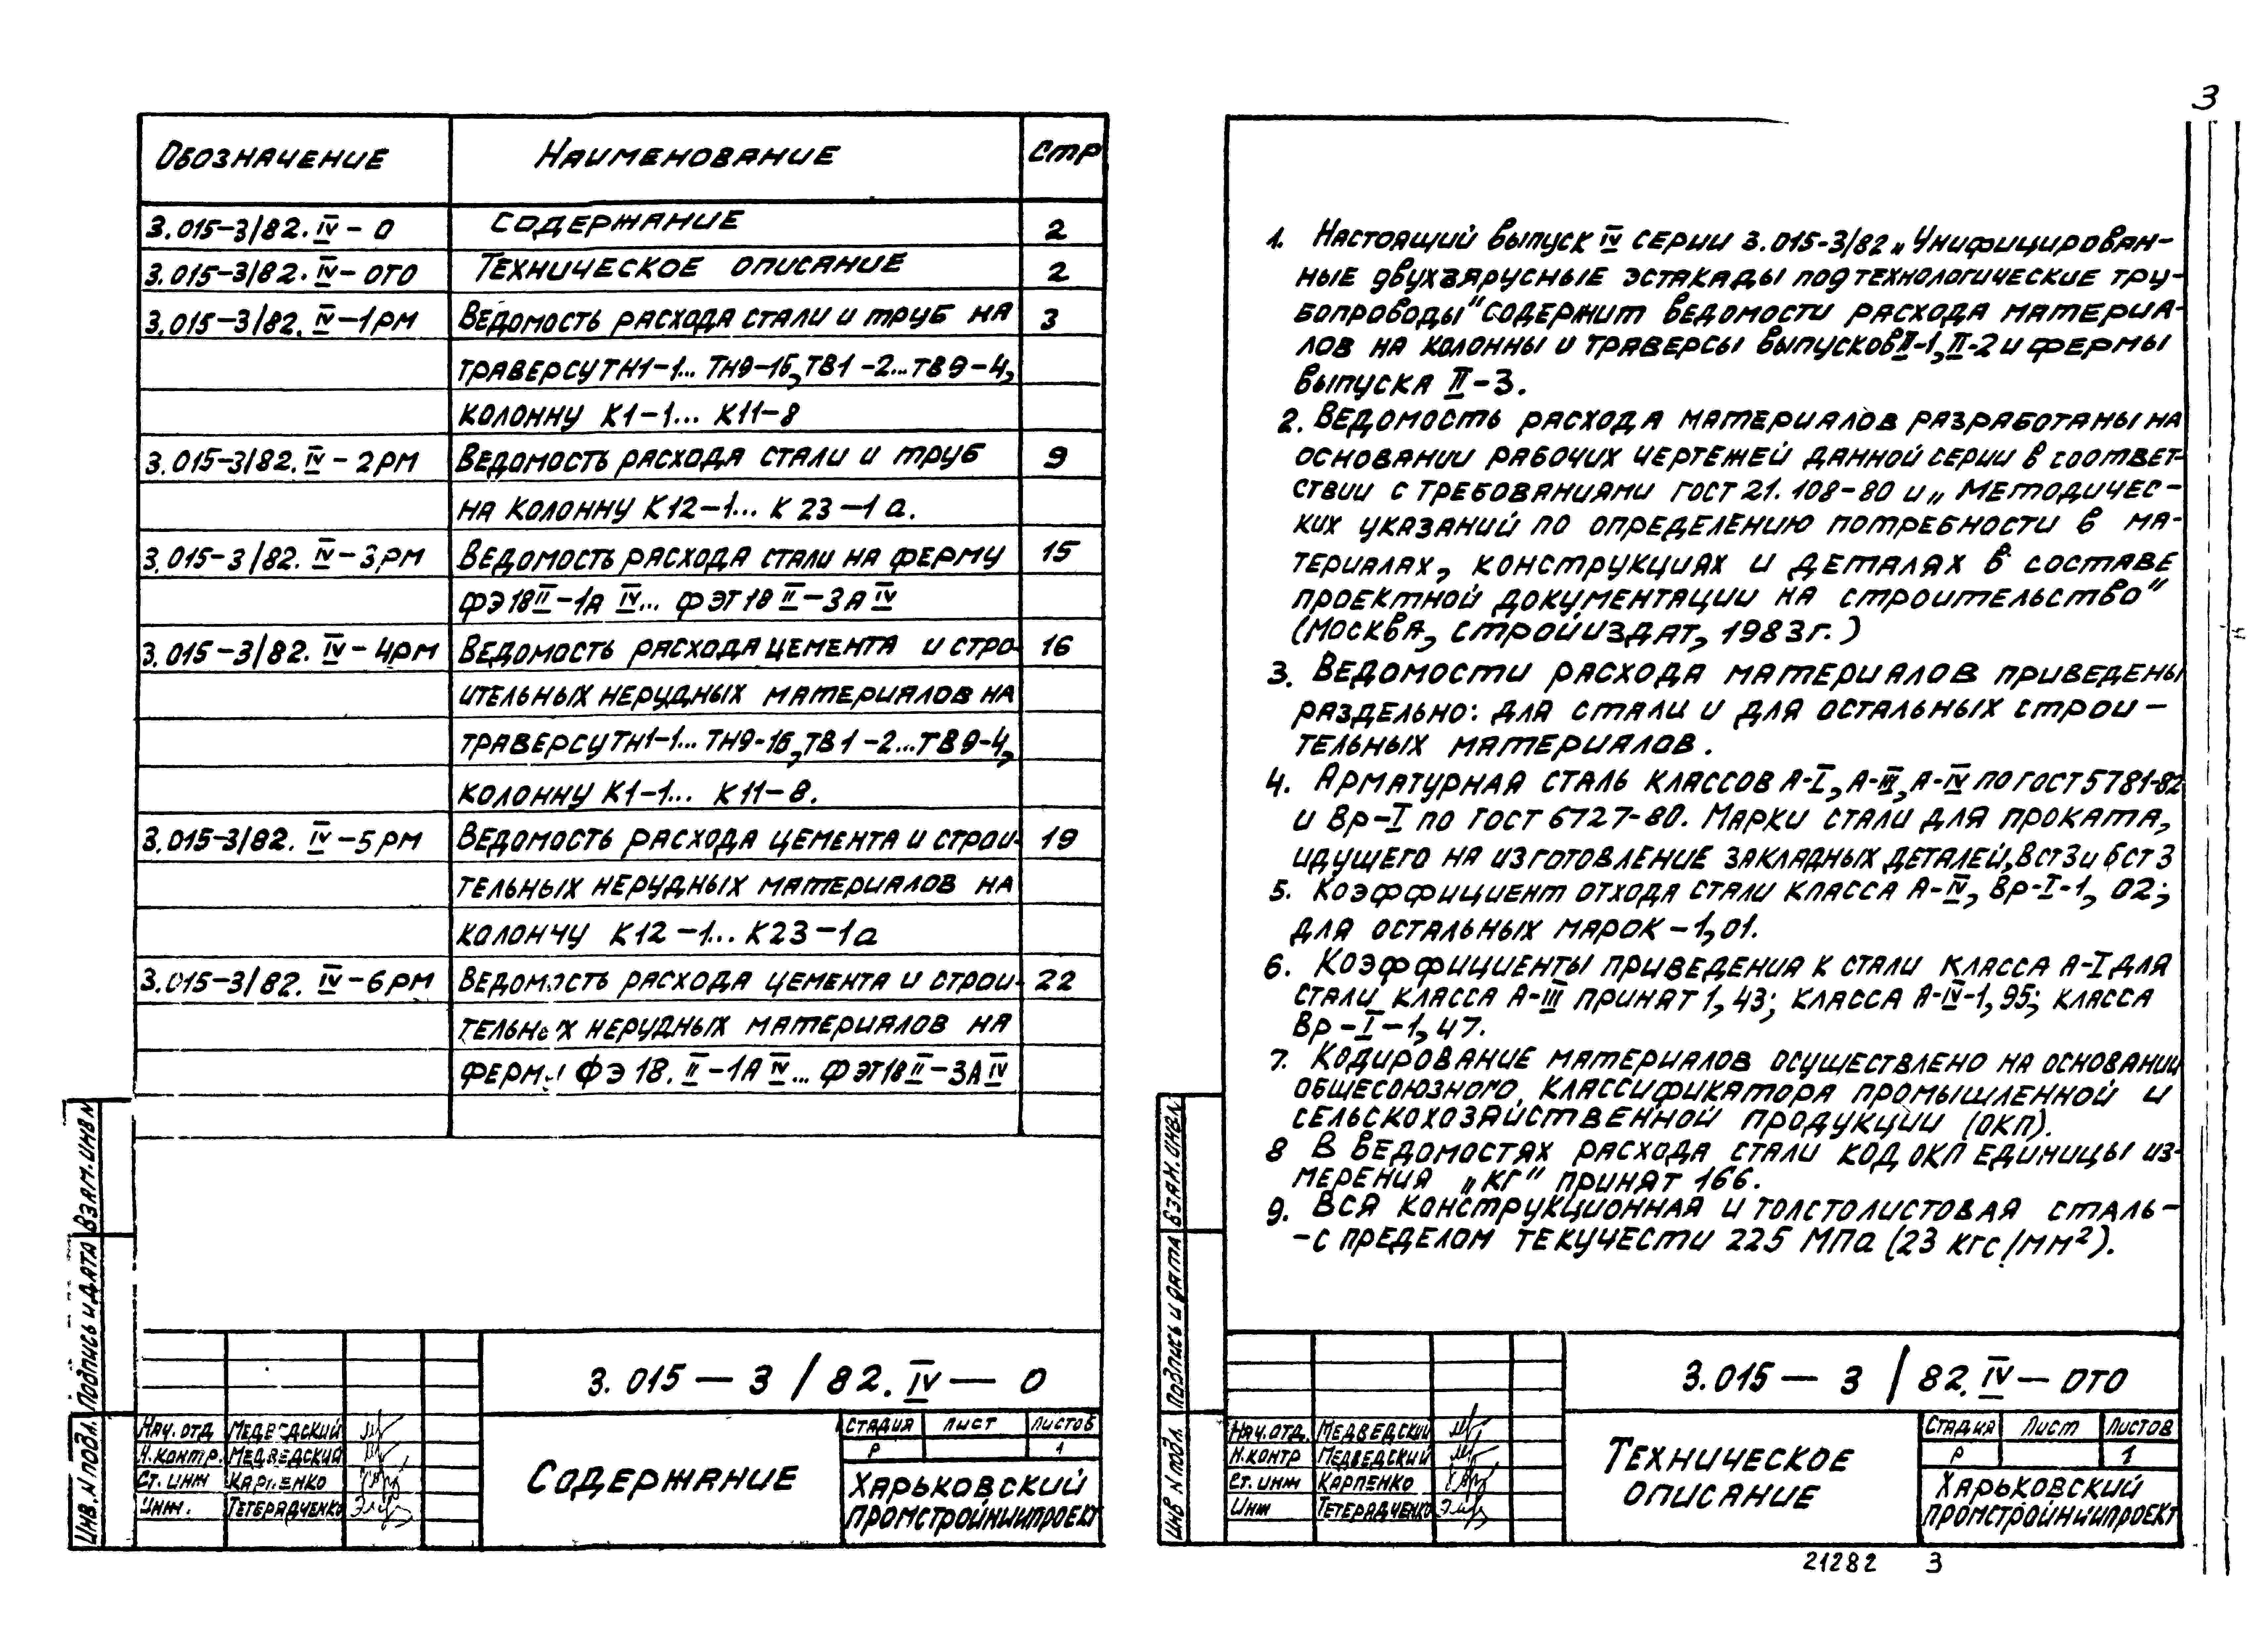 3
Обозначение Наименование Стр
3.015-3/82.IV-0 Содержание 2
3.015-3/82.IV-ОТО Техническое описание 2
3.015-3/82.IV-1РМ Ведомость расхода стали и труб на 3
траверсу ТН1-1... ТН9-16, ТВ1-2...ТВ9-4,
колонну К1-1... К11-8
3.015-3/82.IV-2РМ Ведомость расхода стали и труб 9
на колонну К12-1... К23-1а.
3.015-3/82.IV-3РМ Ведомость расхода стали на ферму 15
ФЭ18II-1АIV... ФЭТ18II-3АIV
3.015-3/82.IV-4РМ Ведомость расхода цемента и стро- 16
ительных нерудных материалов на
траверсу ТН1-1... ТН9-16, ТВ1-2...ТВ9-4,
колонну К1-1... К11-8.
3.015-3/82.IV-5РМ Ведомость расхода цемента и строи- 19
тельных нерудных материалов на
колонну К12-1... К23-1а
3.015-3/82.IV-6РМ Ведомость расхода цемента и строи- 22
тельных нерудных материалов на
фермы ФЭ18.II-1АIV... ФЭТ18II-3АIV
Взам.инв.N
Подпись и дата
Инв.N подл.
3.015-3/82.IV-0
Нач.отд Медведский
Н.контр. Медведский
Ст.инж Карпенко
Инж. Тетерядченко
Содержание
Стадия Лист Листов
Р 1
Харьковский
Промстройниипроект
1. Настоящий выпуск IV серии 3.015-3/82 „Унифицирован-
ные двухъярусные эстакады под технологические тру-
бопроводы" содержит ведомости расхода материа-
лов на колонны и траверсы выпусков II-1, II-2 и фермы
выпуска II-3.
2. Ведомость расхода материалов разработаны на
основании рабочих чертежей данной серии в соответ-
ствии с требованиями ГОСТ 21.108-80 и „Методичес-
ких указаний по определению потребности в ма-
териалах, конструкциях и деталях в составе
проектной документации на строительство"
(Москва, Стройиздат, 1983г.)
3. Ведомости расхода материалов приведены
раздельно: для стали и для остальных строи-
тельных материалов.
4. Арматурная сталь классов А-I, А-III, А-IV по ГОСТ 5781-82
и Вр-I по ГОСТ 6727-80. Марки стали для проката,
идущего на изготовление закладных деталей, Вст3 и бст3
5. Коэффициент отхода стали класса А-IV, Вр-I-1,02;
для остальных марок-1,01.
6. Коэффициенты приведения к стали класса А-I для
стали класса А-III принят 1,43; класса А-IV-1,95; класса
Вр-I-1,47.
7. Кодирование материалов осуществлено на основании
общесоюзного классификатора промышленной и
сельскохозяйственной продукции (ОКП).
8 В ведомостях расхода стали код ОКП единицы из-
мерения „КГ" принят 166.
9. Вся конструкционная и толстолистовая сталь-
-с пределом текучести 225 МПа (23 кгс/мм²).
Взам.инв.N
Подпись и дата
Инв N подл.
3.015-3/82.IV-ОТО
Нач.отд. Медведский
Н.контр Медведский
Ст.инж Карпенко
Инж Тетерядченко
Техническое
описание
Стадия Лист Листов
Р 1
Харьковский
Промстройниипроект
21282 3